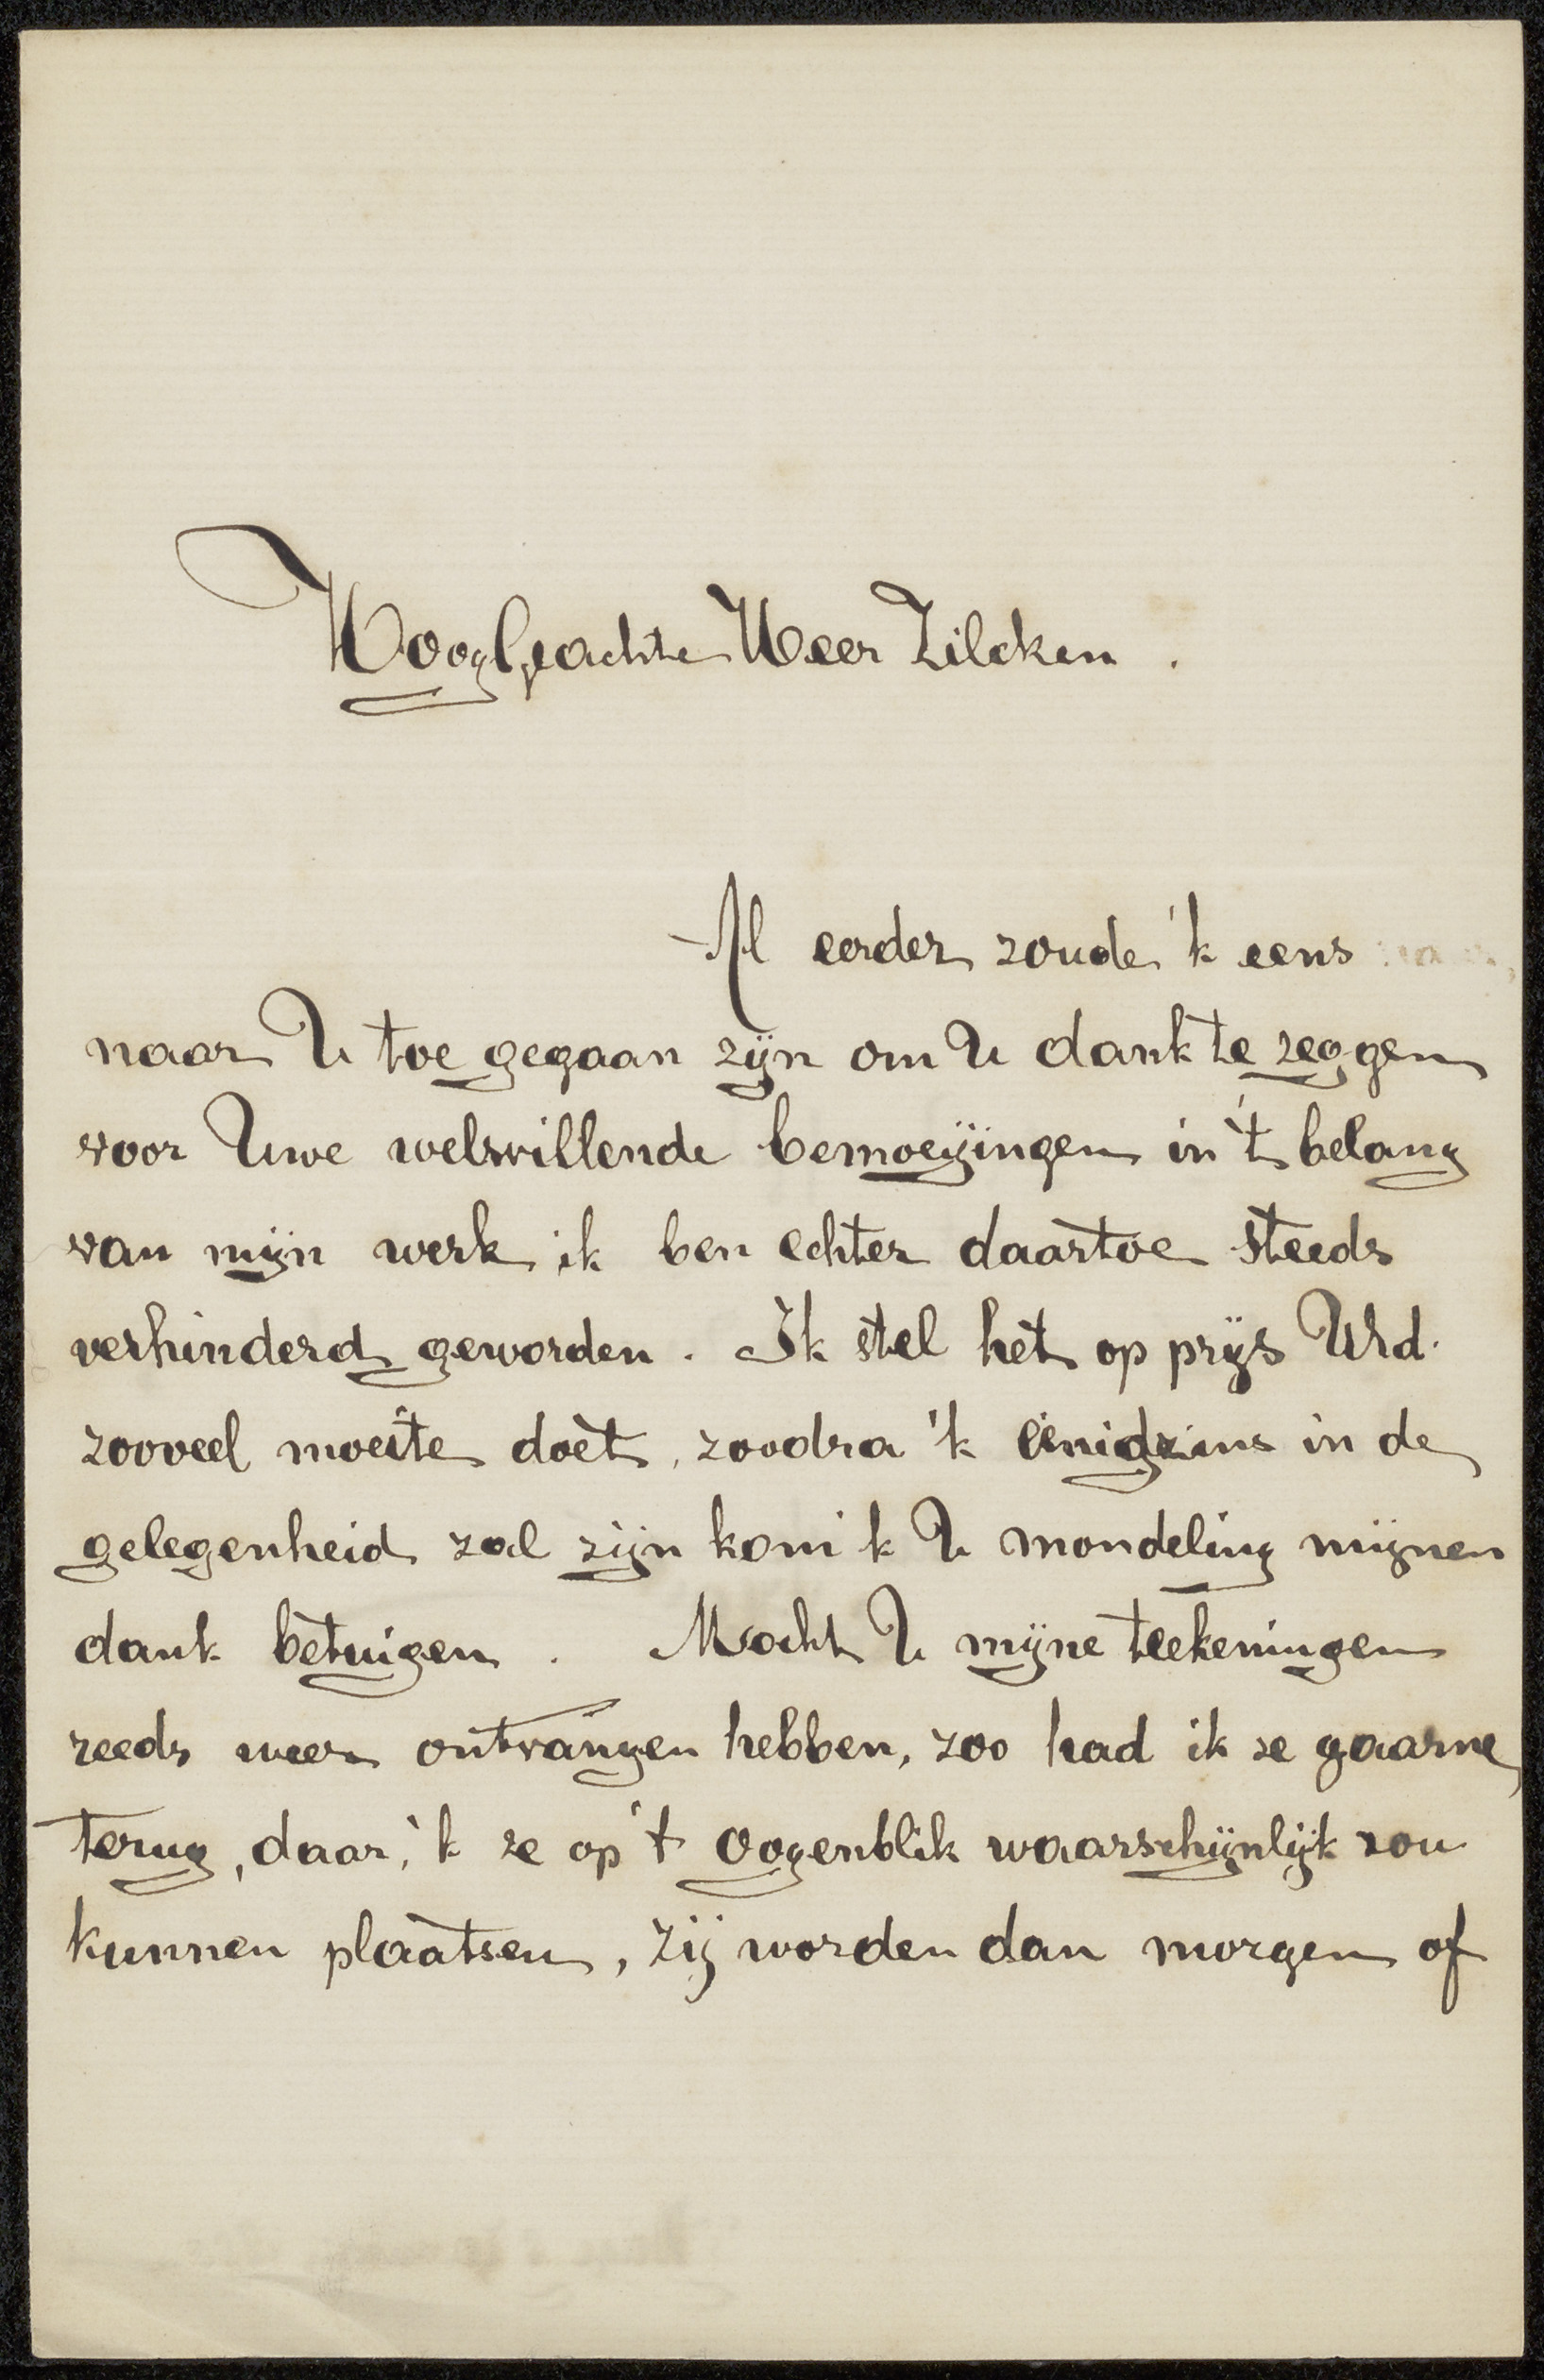 HoogGeachte Heer Zilcken.
Al eerder zoude 'k eens
naar U toe gegaan zijn om U dank te zeggen
voor Uwe welwillende bemoeijingen in 't belang
van mijn werk ik ben echter daartoe steeds
verhinderd geworden. Ik stel het op prijs UEd.
zooveel moeite doet, zoodra 'k eenigzins in de
gelegenheid zal zijn kom 'k U mondeling mijnen
dank betuigen. Mocht U mijne teekeningen
reeds weer ontvangen hebben, zoo had ik ze gaarne
terug, daar 'k ze op 't oogenblik waarschijnlijk zou
kunnen plaatsen, zij worden dan morgen of